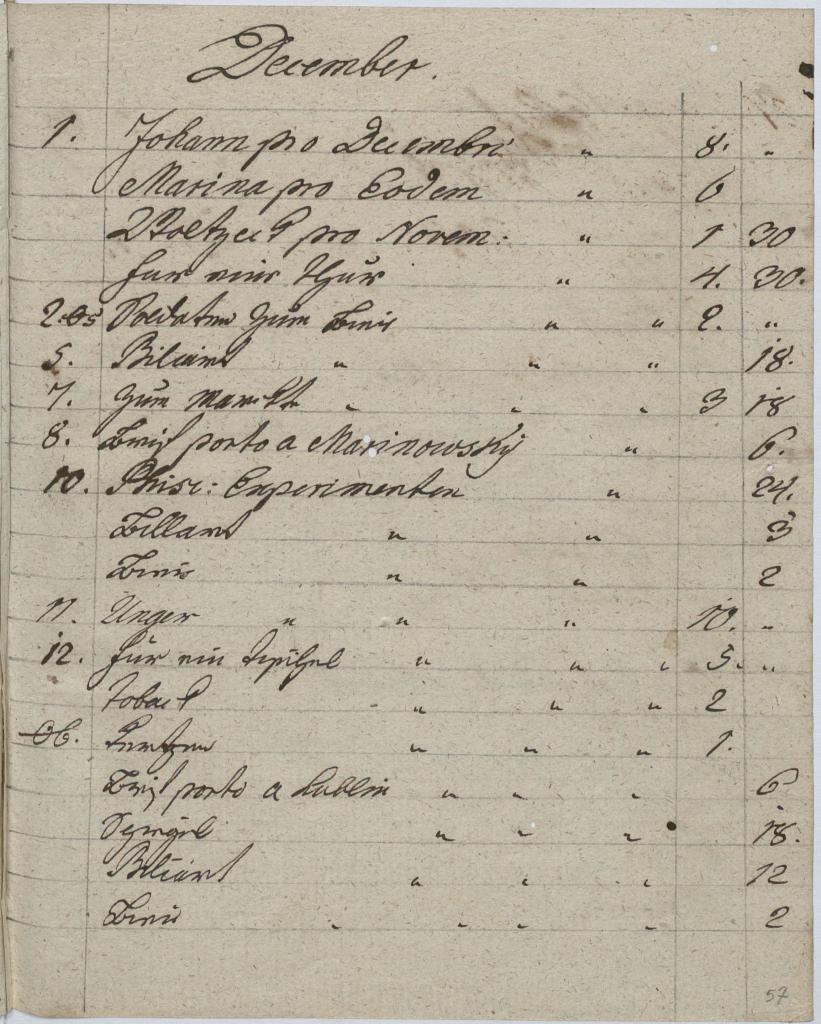 December.
1. Johann pro Decembri " 8. "
Marina pro Eodem " 6
pro Novem: " 1 30
fur eine Thür " 4. 30.
2. Soldaten zum Bier " " 2. "
5. Biliard " " " 18.
7. Zum Marckt " " " 3 18
8. Brief porto a Marinowsky " 6.
10. Phisc: Experimenten " 24.
Billard " " 3
Bier " " 2
11. Unger " " " 10. "
12. für ein " " " 5. "
toback " " " 2
Kertzen " " " 1.
Brief porto a Lublin " " " 6
" " " 18.
Biliard " " " 12
Bier " " " " 2
57